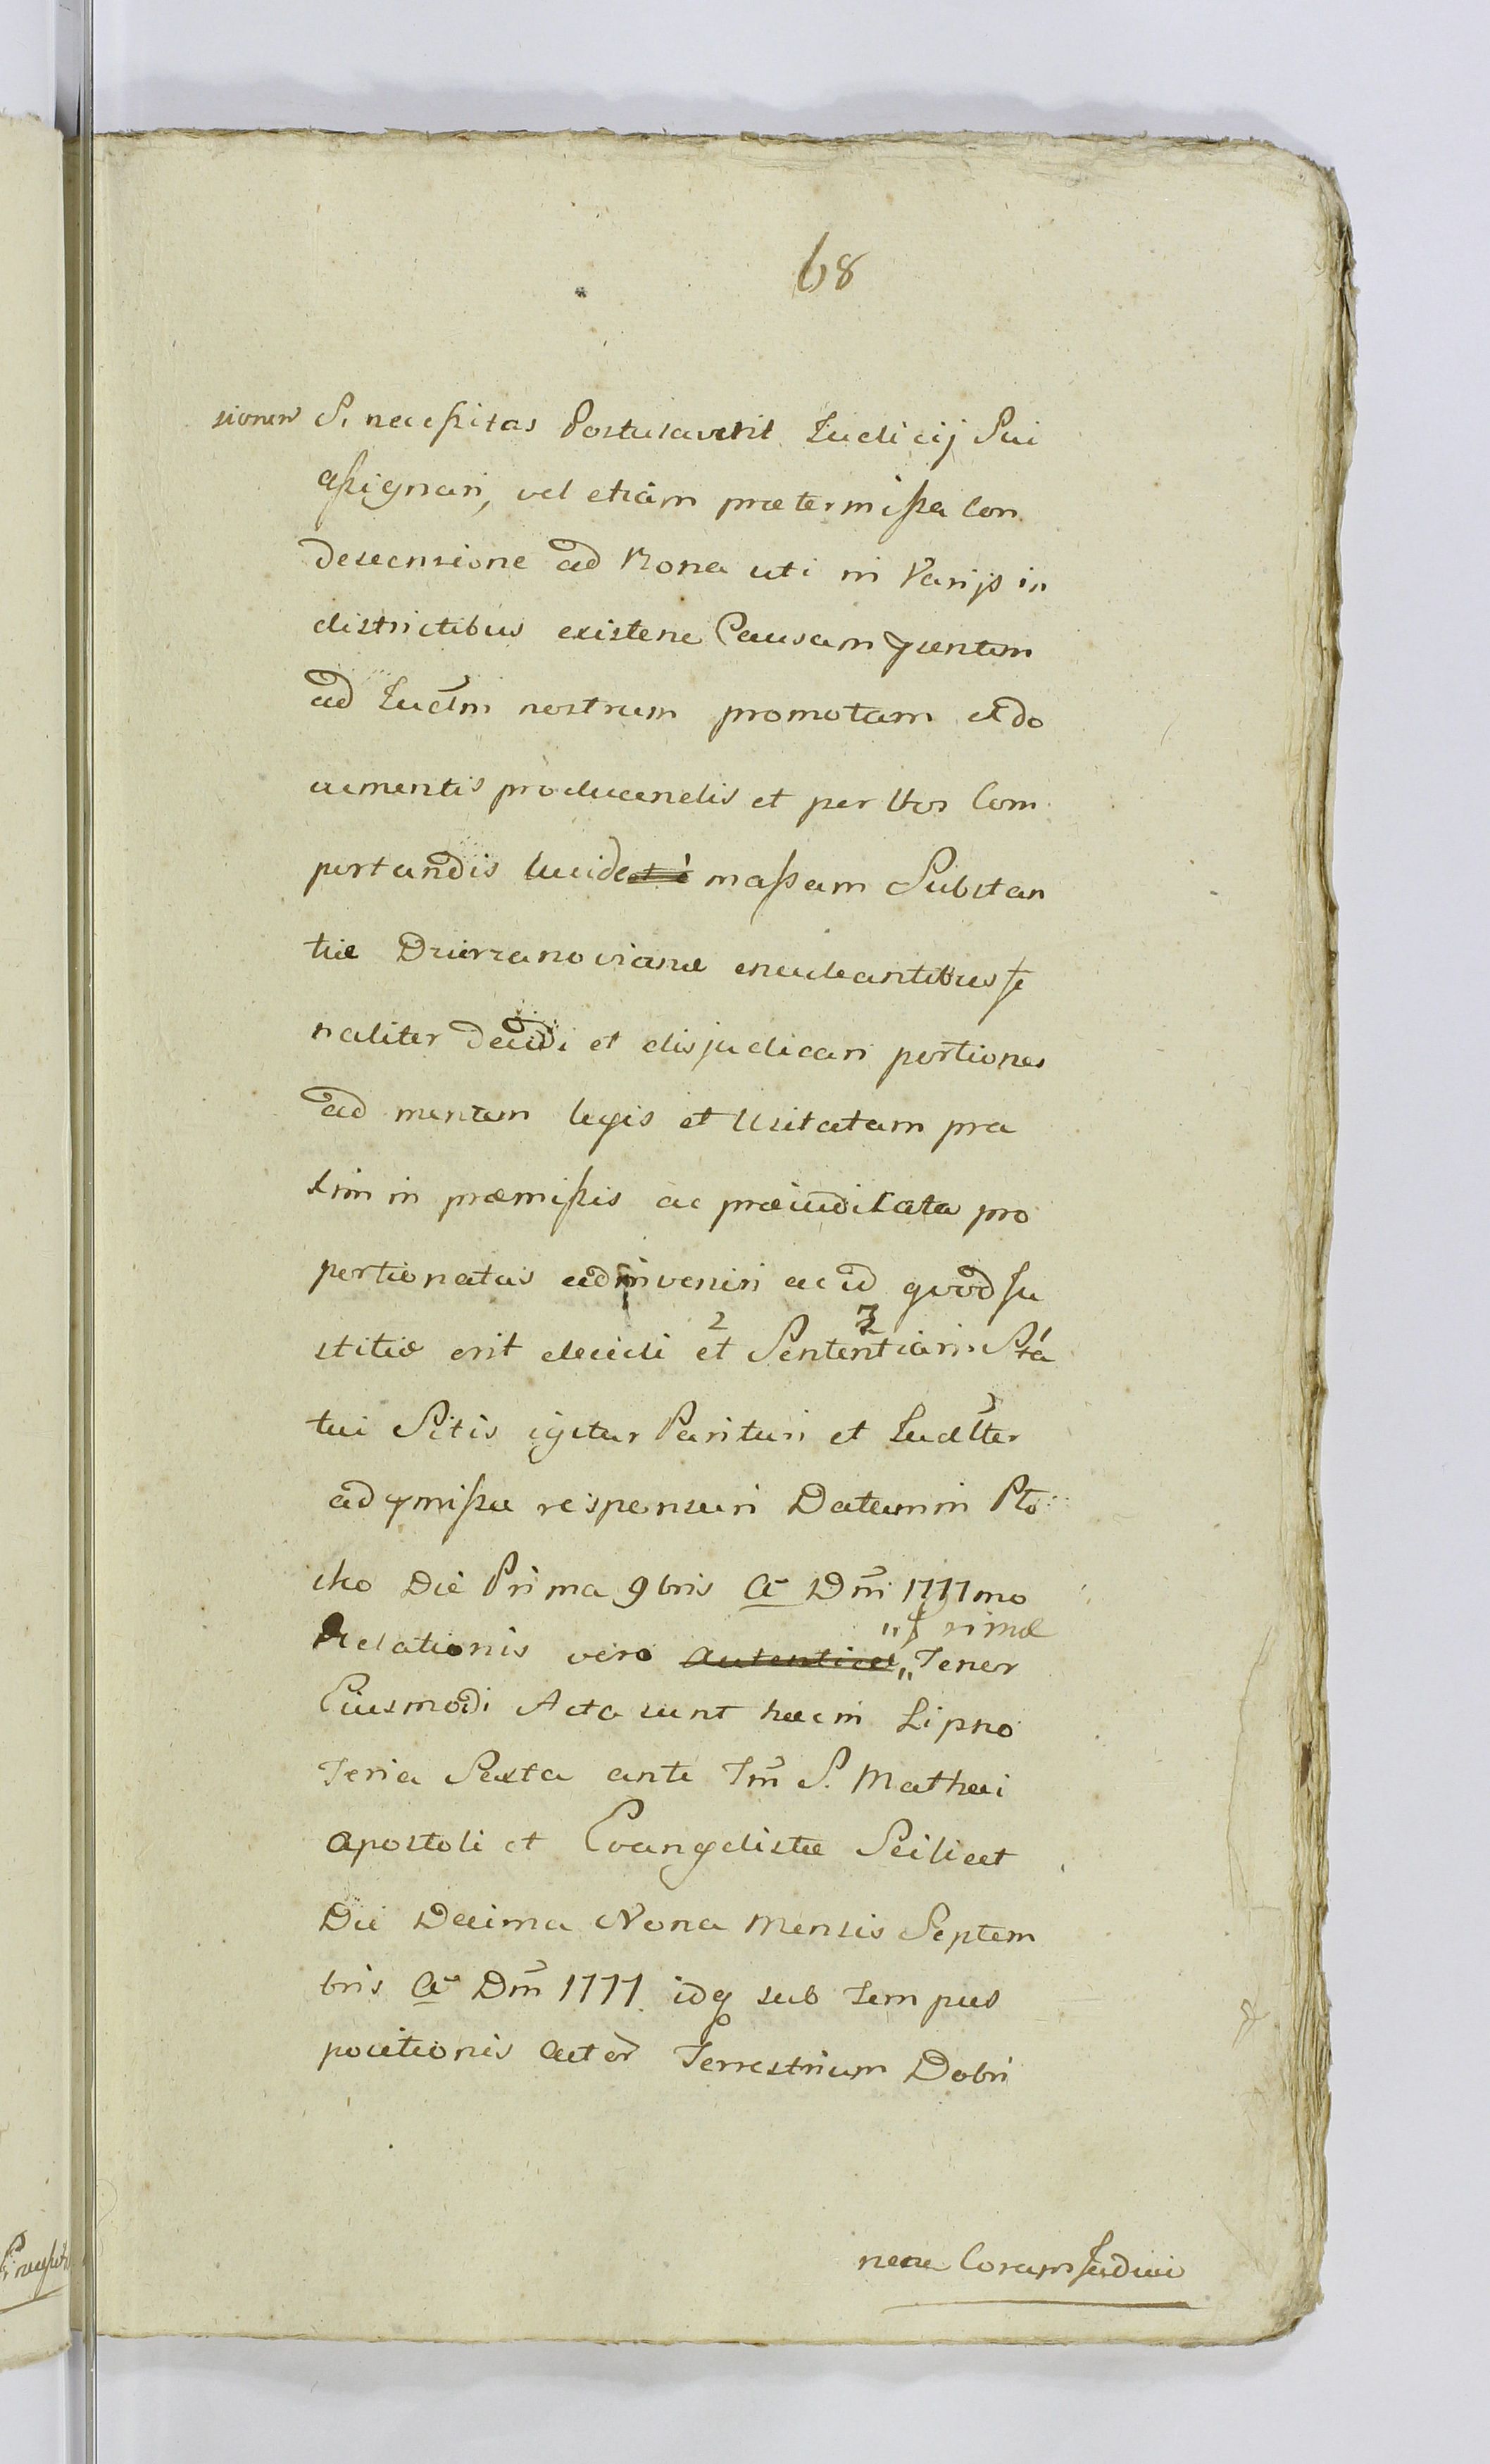 68
sionem Si necessitas Postulaverit Iudicij Sui
assignari, vel etiam prætermissa Con
descensione ad Bona uti in Varijs in
districtibus existen Causam pnentem
ad Iudm nostrum promotam et do
cumentis producendis et per Vos Com
portandis lucide massam Substan
tiæ Dzierzanovianæ enucleantibus fi
naliter decidi et disjudicari portiones
ad mentem legis et Usitatam pra
xim in præmissis ac præiudicata pro
portionatas adinveniri ac id quod Iu
stitiæ erit decidi et 2 Sententiam 3 Sta
tui Sitis igitur Parituri et Iudltter
ad pmissa responsuri Datum in Plo
cko Die Prima 9bris Aō Dni 1777mo
"primæ
Relationis vero autenticæ "Tenor
Eiusmodi Acta sunt hæc in Lipno
Feria Sexta ante Fm S. Mathæi
Apostoli et Evangelistæ Scilicet
Die Decima Nona Mensis Septem
bris Aō Dni 1777 idq sub tempus
positionis Actor Terrestrium Dobri
nen Coram Iudicio